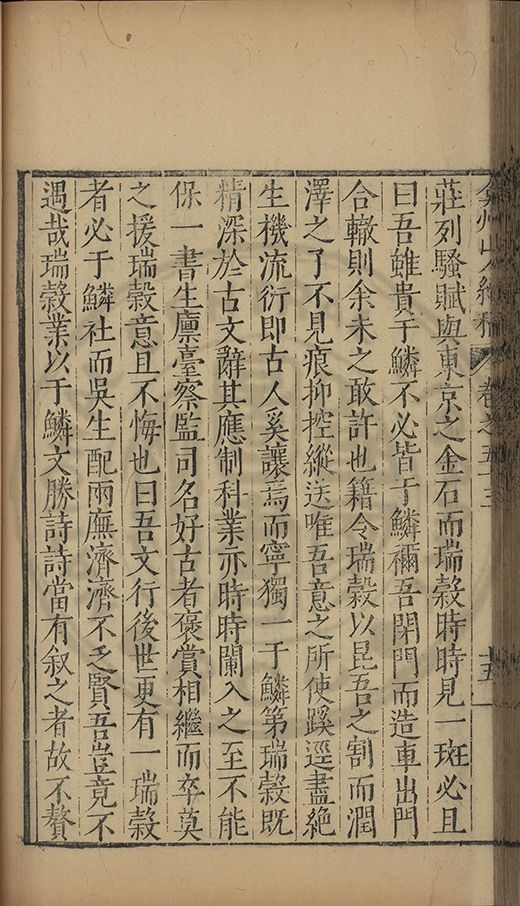 弇州山人續稿 卷之五十三 十五
莊列騷賦與東京之金石而瑞穀時時見一斑必且
曰吾雖貴于鱗不必皆于鱗禰吾閉門而造車出門
合轍則余未之敢許也籍令瑞穀以昆吾之割而潤
澤之了不見痕抑控縱送唯吾意之所使蹊逕盡絶
生機流衍即古人奚讓焉而寧獨一于鱗第瑞穀既
精深於古文辭其應制科業亦時時闌入之至不能
保一書生廩臺察監司名好古者褒賞相繼而卒莫
之援瑞穀意且不悔也曰吾文行後世更有一瑞穀
者必于鱗社而吳生配兩廡濟濟不乏賢吾豈竟不
遇哉瑞穀業以于鱗文勝詩詩當有叙之者故不贅